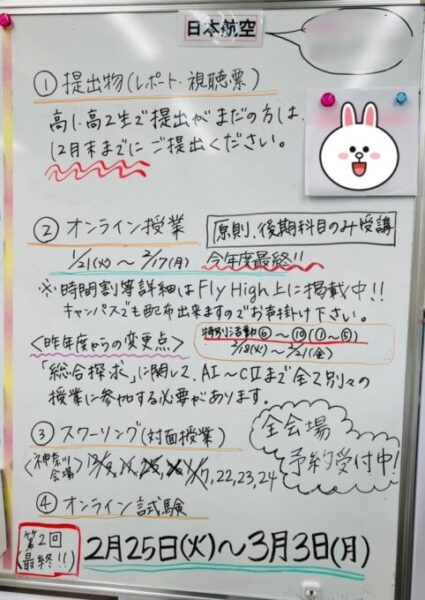 日本航空
① 提出物(レポート・視聴票)
高1・高2生で提出がまだの方は、
12月末までにご提出ください。
② オンライン授業
原則、後期科目のみ受講
1/21(火)～2/17(月) 今年度最終!!
※時間割等詳細はFly High上に掲載中!!
キャンパスでも配布出来ますのでお声掛け下さい。
特別活動⑥～⑩(①～⑤)
2/18(火)～2/21(金)
<昨年度からの変更点>
「総合探求」に関して、AI～CIIまで全て別々の
授業に参加する必要があります。
③ スクーリング(対面授業)
全会場
予約受付中!
<神奈川会場>
22, 23, 24
④ オンライン試験
第2回
最終!!
2月25日(火)～3月3日(月)